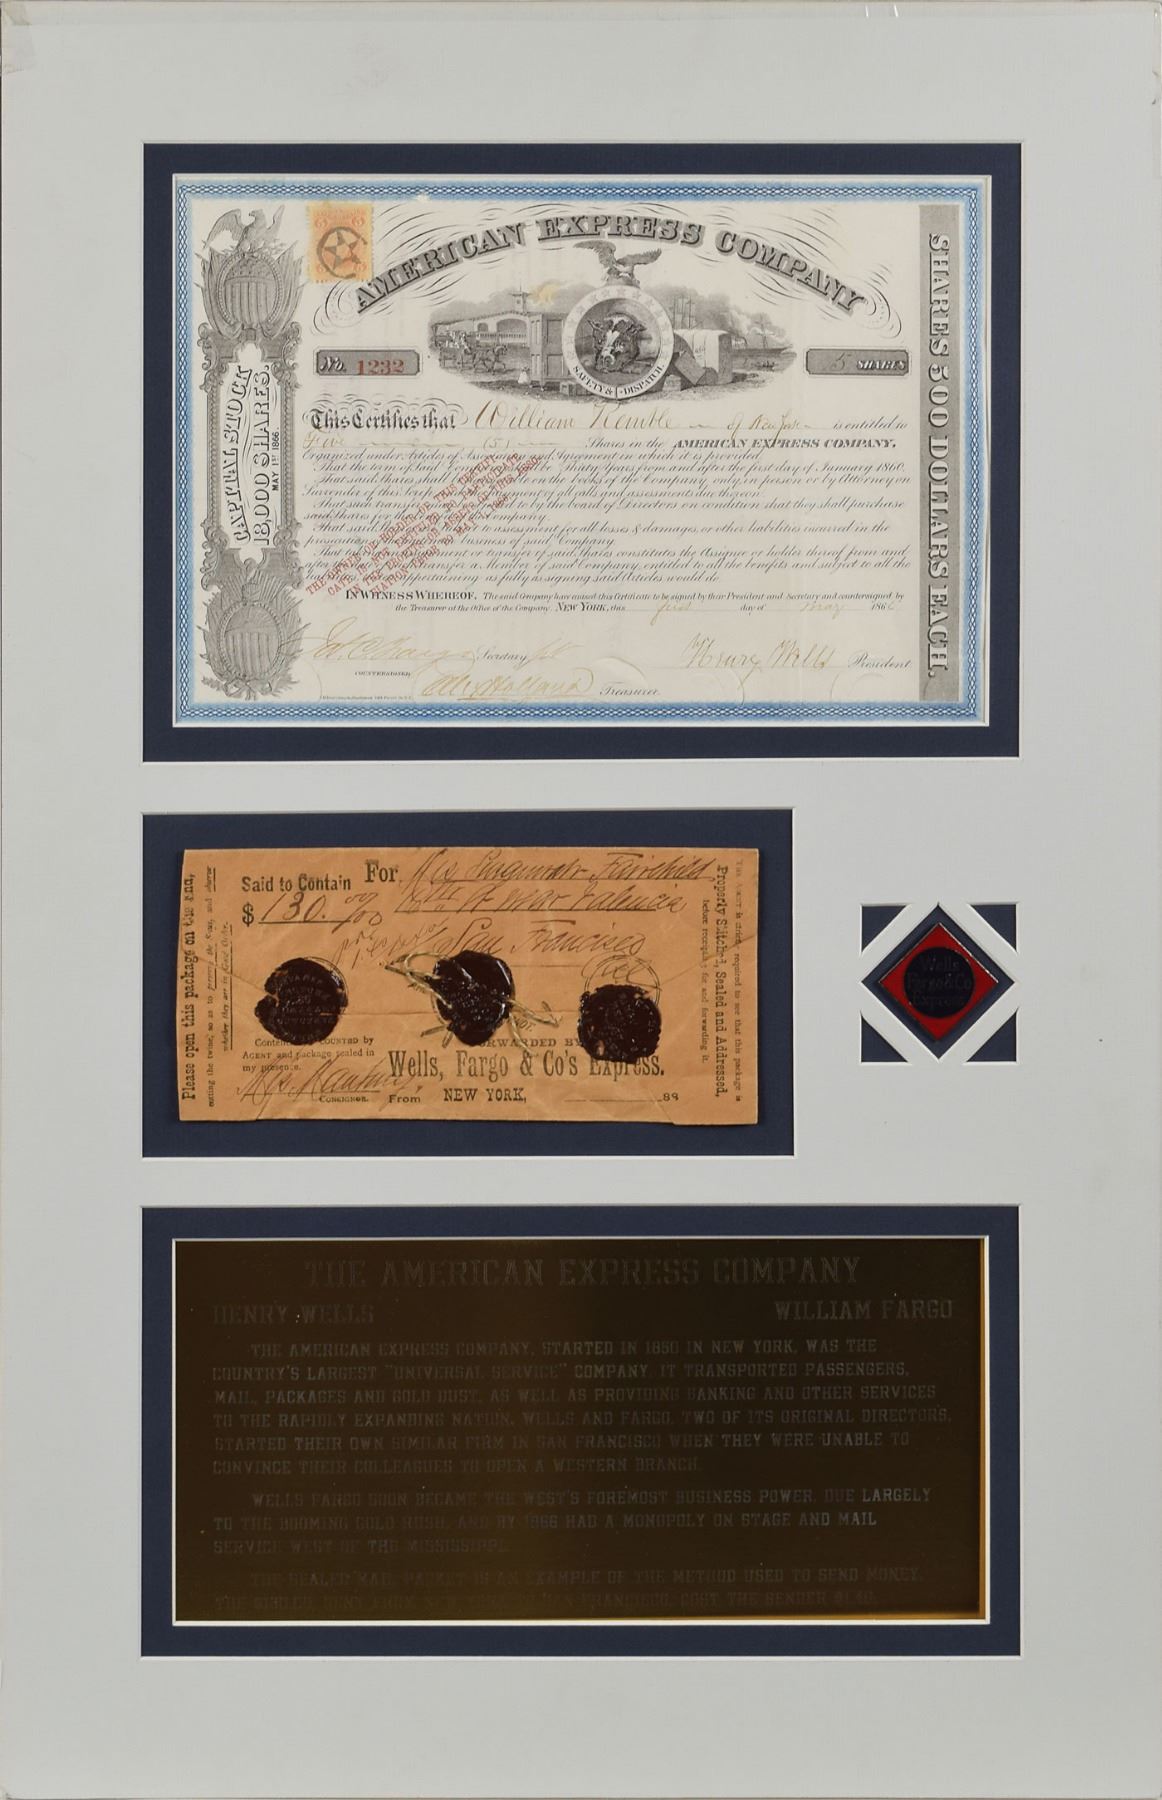 AMERICAN EXPRESS COMPANY
SAFETY & DISPATCH
No. 1232
5 SHARES
CAPITAL STOCK
18,000 SHARES.
MAY 1ST 1866.
SHARES 500 DOLLARS EACH.
This Certifies that William Kemble of New York is entitled to
Five (5) Shares in the AMERICAN EXPRESS COMPANY,
Organized under Articles of Association and Agreement in which it is provided,
That the term of said Company shall be Thirty Years from and after the first day of January 1860.
That said Shares shall be on the books of the Company, only in person or by Attorney on
Surrender of this Receipt and payment of all calls and assessments due thereon.
That such transfer to by the board of Directors on condition that they shall purchase
said Shares for the Company.
That said to assessment for all losses & damages, or other liabilities incurred in the
prosecution of the business of said Company.
That the assignment or transfer of said Shares constitutes the Assignee or holder thereof from and
after the transfer a Member of said Company, entitled to all the benefits and subject to all the
appertaining as fully as signing said Articles would do.
THE OWNER OR HOLDER OF THIS CERTIFI-
CATE IS NOT ENTITLED TO PARTICIPATE
IN THE PROFITS OR ASSETS OF THIS ASSO-
CIATION PRIOR TO MAY 1, 1866.
IN WITNESS WHEREOF. The said Company have caused this Certificate to be signed by their President and Secretary and countersigned by
the Treasurer at the Office of the Company NEW YORK, this first day of May 1866
Secretary
Henry Wells President
COUNTERSIGNED
Alex Holland Treasurer.
Please open this package on the End,
cutting the twine, so as to preserve the Seal, and observe
whether they are in Good Order.
Said to Contain
$ 130. 00/00
For Fairchild
Valencia
San Francisco
Cal
Contents COUNTED by
AGENT and package sealed in
my presence.
CONSIGNOR.
FORWARDED BY
Wells, Fargo & Co's Express.
From NEW YORK, 88
Properly Stitched, Sealed and Addressed,
before receipting for and forwarding it.
THE AGENT is strictly required to see that this package is
Wells
Fargo & Co
Express
THE AMERICAN EXPRESS COMPANY
HENRY WELLS WILLIAM FARGO
THE AMERICAN EXPRESS COMPANY, STARTED IN 1850 IN NEW YORK, WAS THE
COUNTRY'S LARGEST "UNIVERSAL SERVICE" COMPANY. IT TRANSPORTED PASSENGERS,
MAIL, PACKAGES AND GOLD DUST, AS WELL AS PROVIDING BANKING AND OTHER SERVICES
TO THE RAPIDLY EXPANDING NATION. WELLS AND FARGO, TWO OF ITS ORIGINAL DIRECTORS,
STARTED THEIR OWN SIMILAR FIRM IN SAN FRANCISCO WHEN THEY WERE UNABLE TO
CONVINCE THEIR COLLEAGUES TO OPEN A WESTERN BRANCH.
WELLS FARGO SOON BECAME THE WEST'S FOREMOST BUSINESS POWER, DUE LARGELY
TO THE BOOMING GOLD RUSH, AND BY 1866 HAD A MONOPOLY ON STAGE AND MAIL
SERVICE WEST OF THE MISSISSIPPI.
THE SEALED MAIL PACKET IS AN EXAMPLE OF THE METHOD USED TO SEND MONEY.
THE $130.00, SENT FROM NEW YORK TO SAN FRANCISCO, COST THE SENDER $1.40.